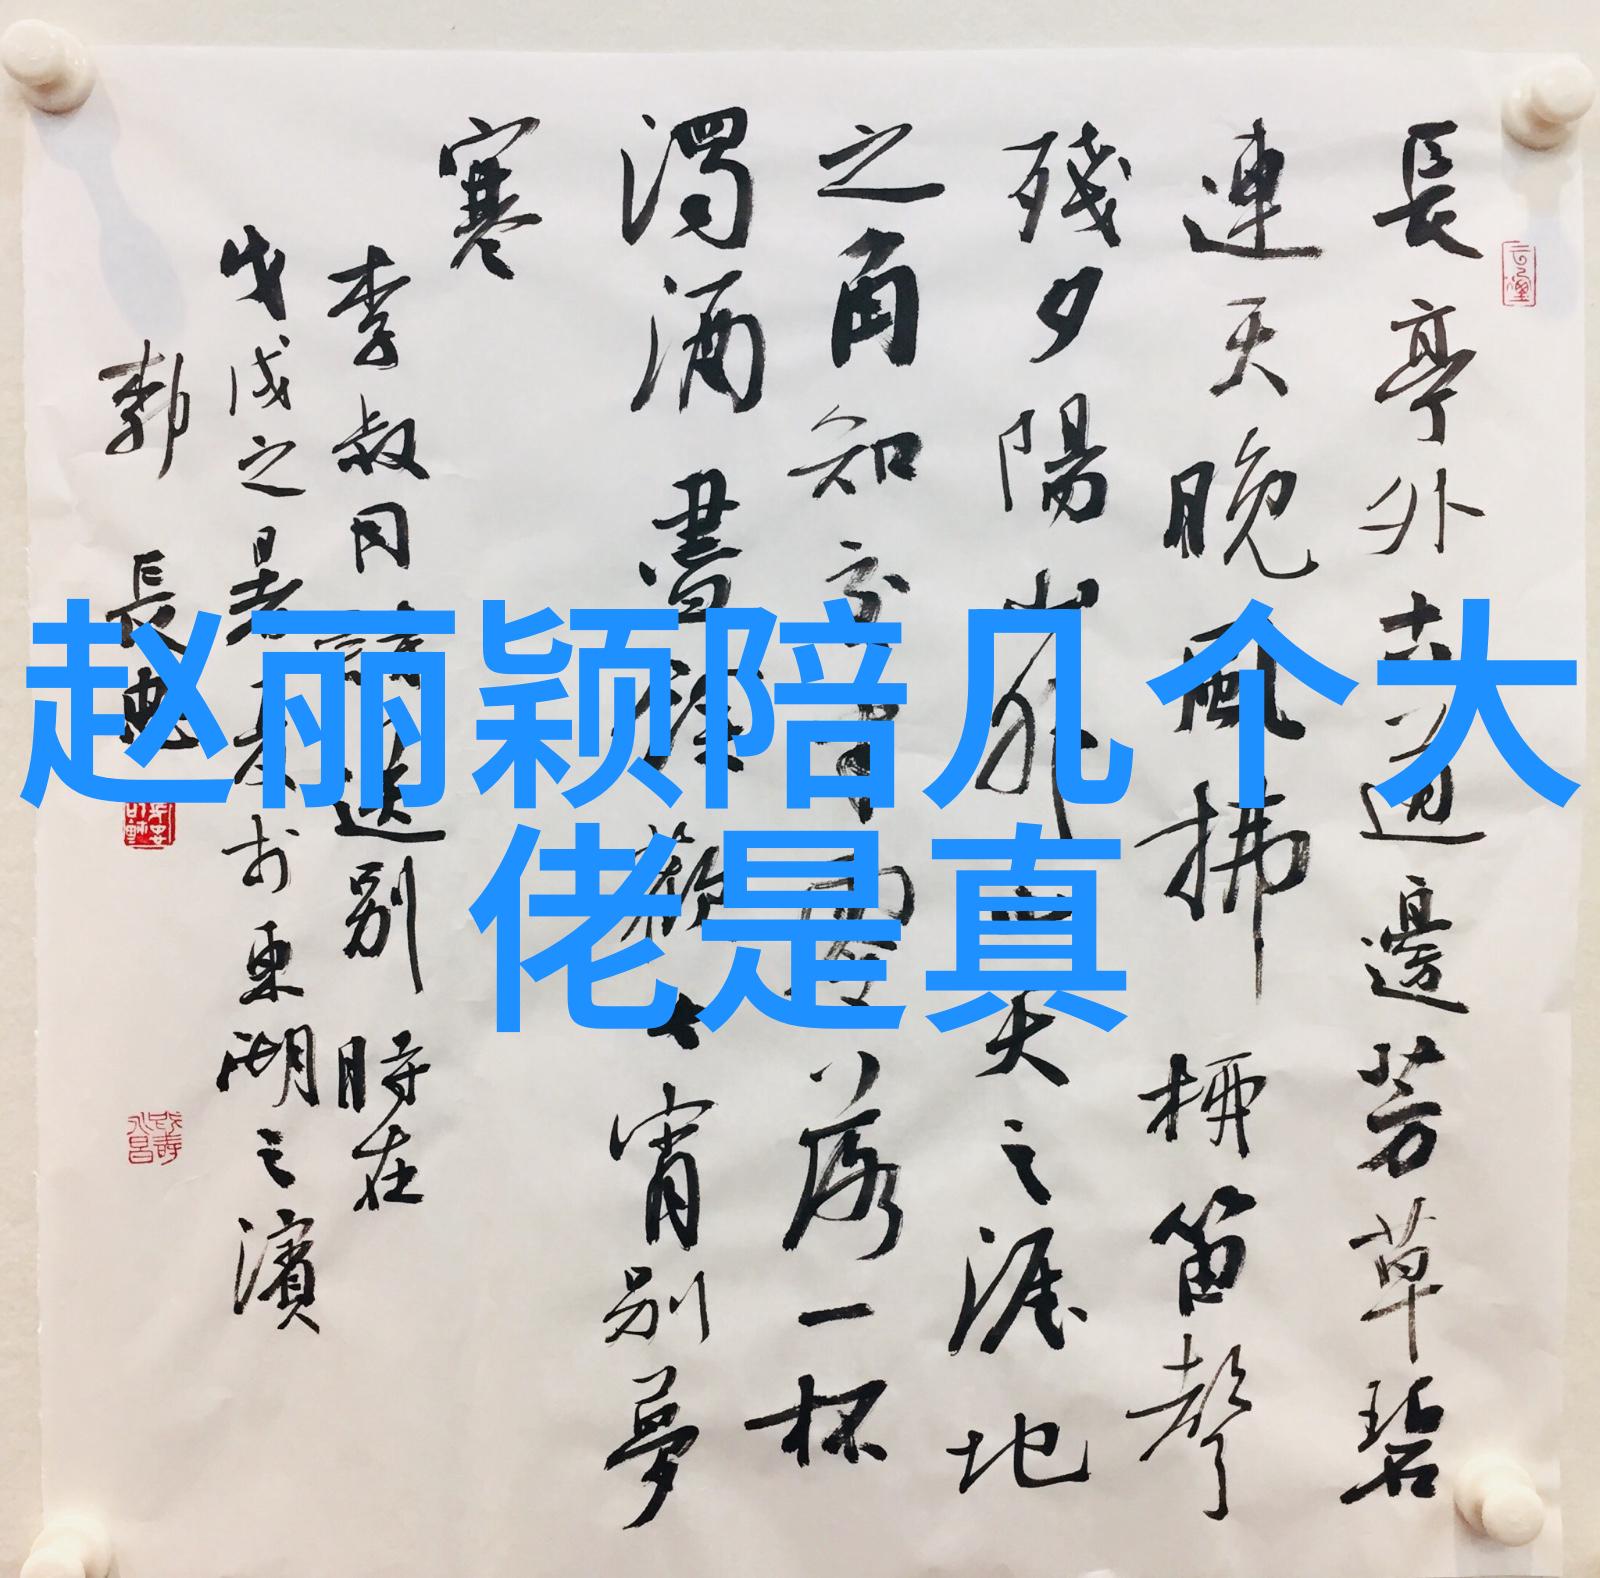 赵丽颖陪几个大
佬是真
長亭外古道邊芳草碧
連天晚風拂柳笛聲
殘夕陽山外山天之涯地
之角知交半零落一杯
濁酒盡餘歡今宵別夢
寒
李叔同詩送别時在
戊戌之暑春於東湖之濱